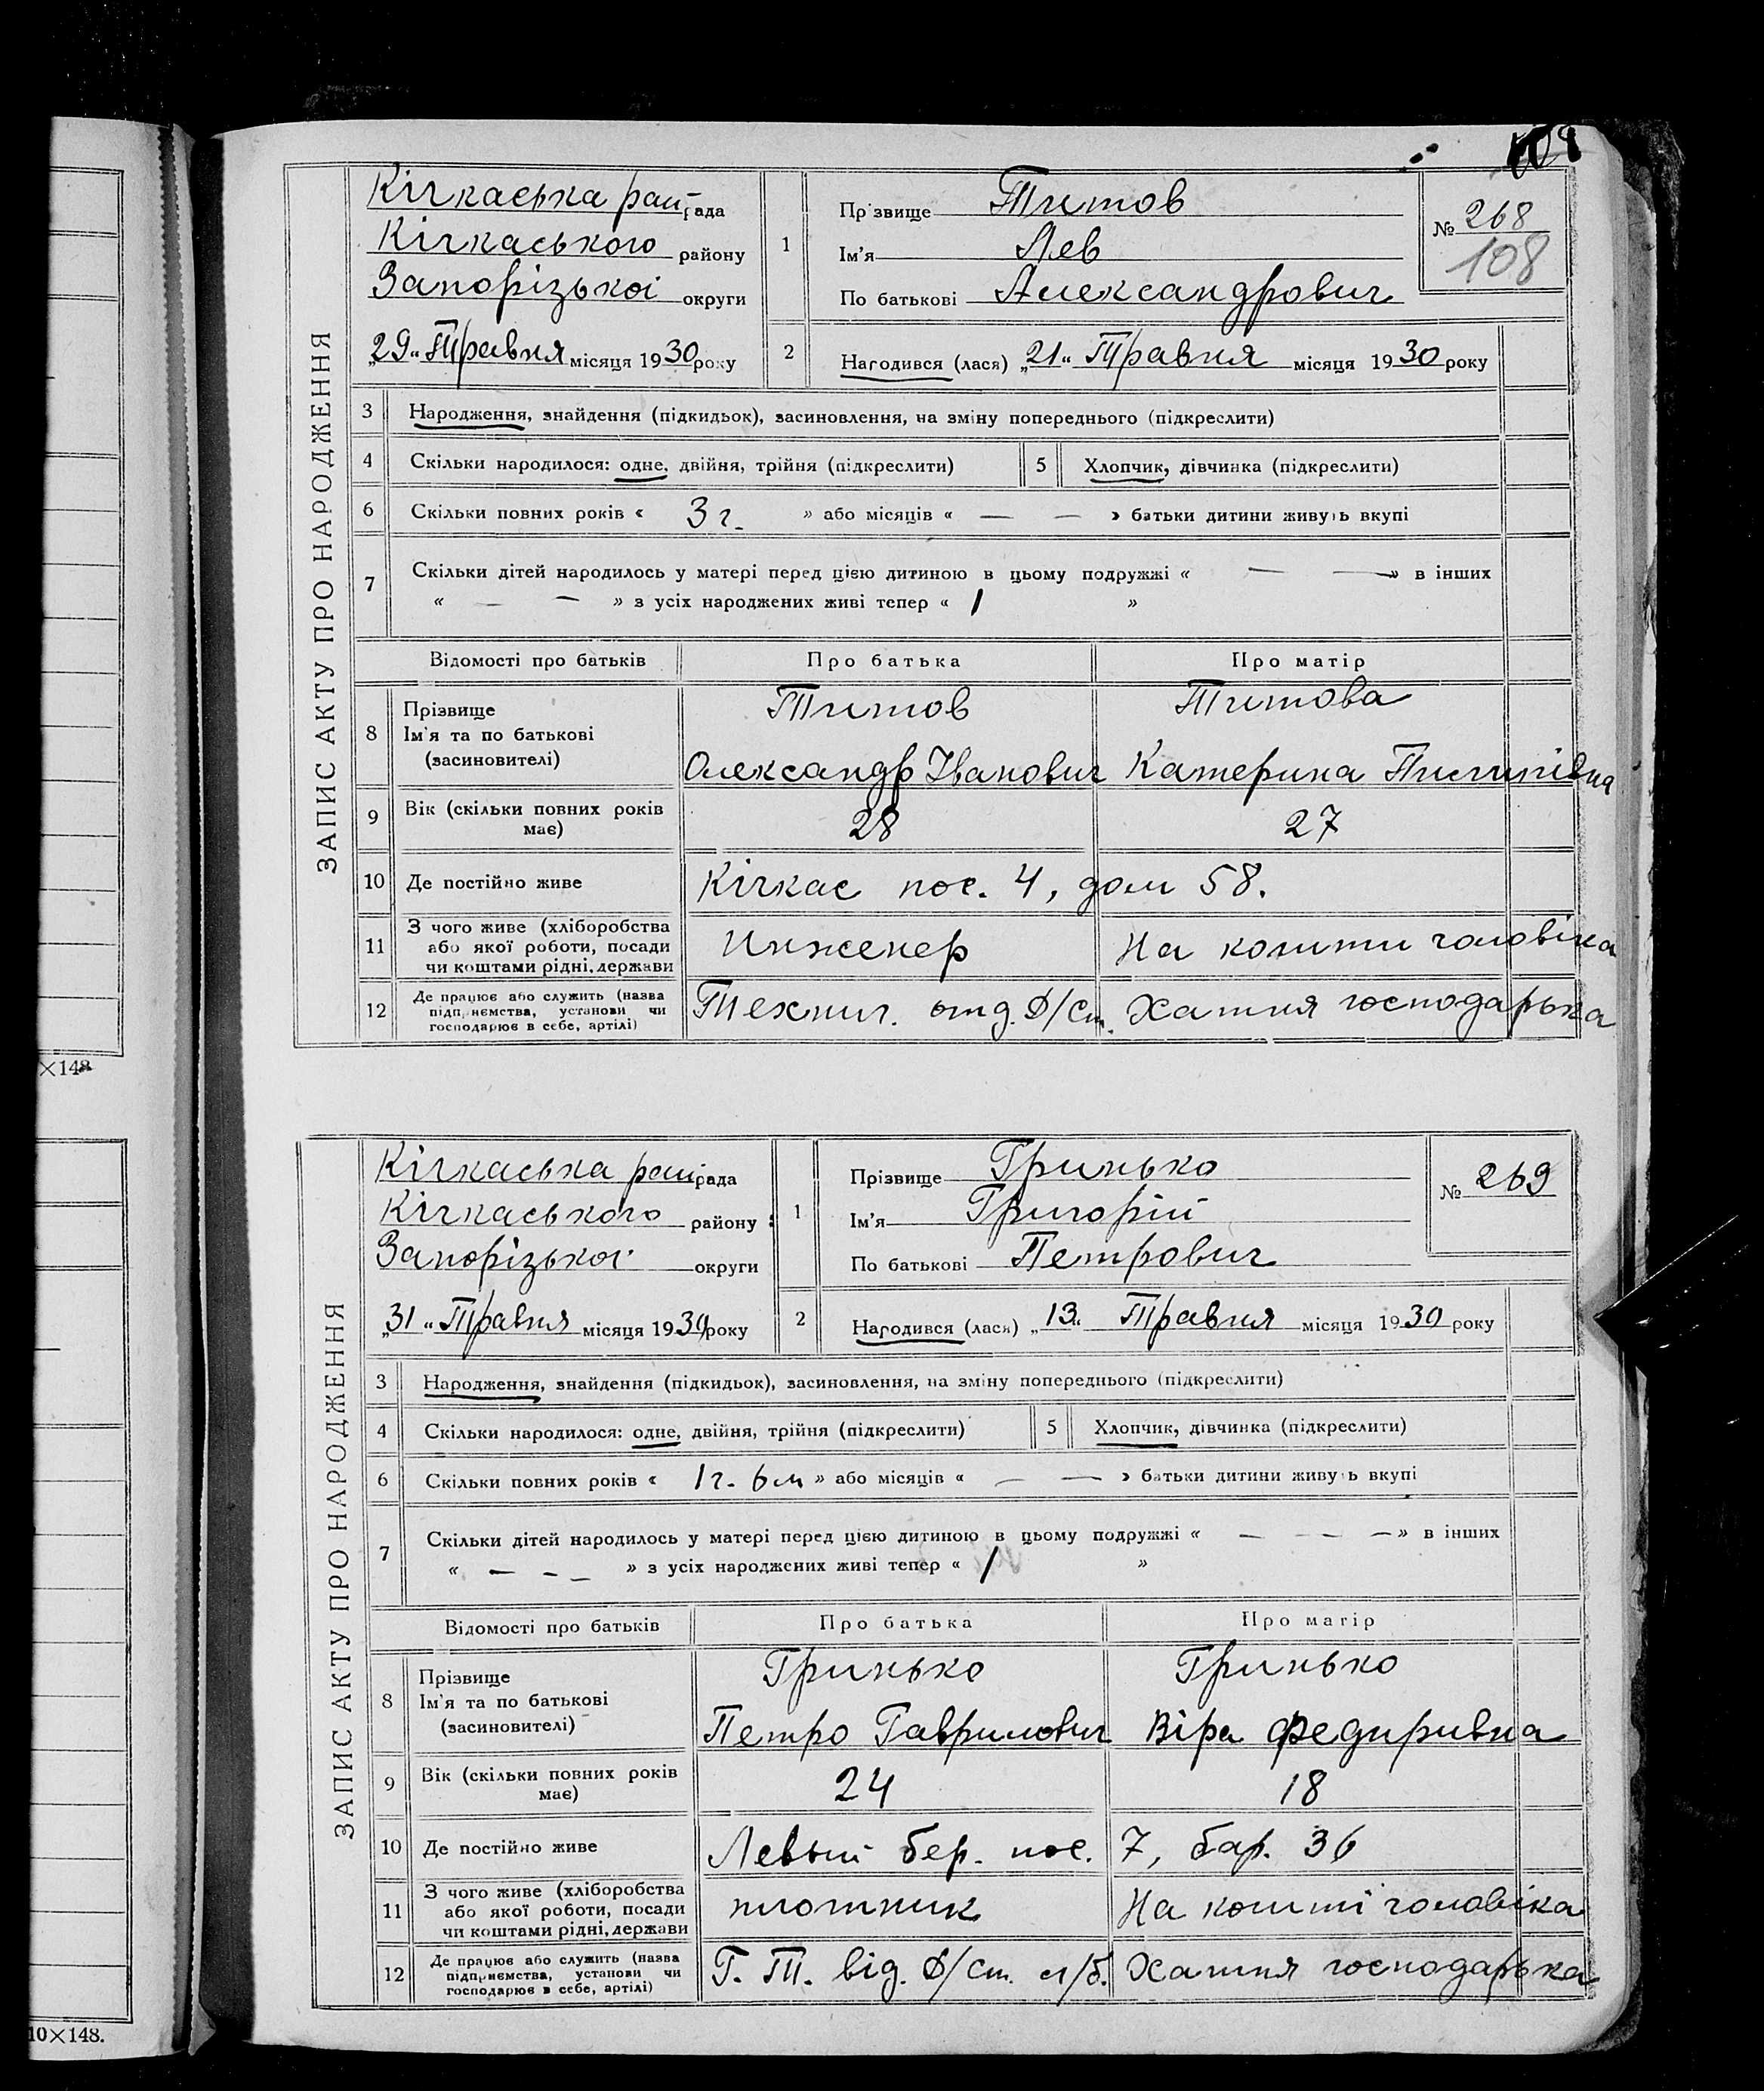 108
ЗАПИС АКТУ ПРО НАРОДЖЕННЯ
Кічкаська рай рада
Кічкаського району
Запорізької округи
„29“ Травня місяця 1930 року
1
Прізвище Титов
Ім'я Лев
По батькові Александрович
№ 268
108
2
Народився (лася) „21“ Травня місяця 1930 року
3 Народження, знайдення (підкидьок), засиновлення, на зміну попереднього (підкреслити)
4 Скільки народилося: одне, двійня, трійня (підкреслити) 5 Хлопчик, дівчинка (підкреслити)
6 Скільки повних років « 3 г. » або місяців « — — » батьки дитини живуть вкупі
7 Скільки дітей народилось у матері перед цією дитиною в цьому подружжі « — — » в інших
« — — » з усіх народжених живі тепер « 1 »
Відомості про батьків Про батька Про матір
8 Прізвище Ім'я та по батькові (засиновителі)
Титов Титова
Олександр Іванович Катерина
9 Вік (скільки повних років має) 28 27
10 Де постійно живе Кічкас пос. 4, дом 58.
11 З чого живе (хліборобства або якої роботи, посади чи коштами рідні, держави Инженер На кошти чоловіка
12 Де працює або служить (назва підприємства, установи чи господарює в себе, артілі) Технич. отд. Д/Ст. Хатня господарька
×148
ЗАПИС АКТУ ПРО НАРОДЖЕННЯ
Кічкаська рай рада
Кічкаського району
Запорізької округи
„31“ Травня місяця 1930 року
1
Прізвище Гринько
Ім'я Григорій
По батькові Петрович
№ 269
2
Народився (лася) „13“ Травня місяця 1930 року
3 Народження, знайдення (підкидьок), засиновлення, на зміну попереднього (підкреслити)
4 Скільки народилося: одне, двійня, трійня (підкреслити) 5 Хлопчик, дівчинка (підкреслити)
6 Скільки повних років « 1 г. 6 м » або місяців « — — » батьки дитини живуть вкупі
7 Скільки дітей народилось у матері перед цією дитиною в цьому подружжі « — - - — » в інших
« — - — » з усіх народжених живі тепер « 1 »
Відомості про батьків Про батька Про матір
8 Прізвище Ім'я та по батькові (засиновителі)
Гринько Гринько
Петро Гаврилович Віра Федиривна
9 Вік (скільки повних років має) 24 18
10 Де постійно живе Левый бер. пос. 7, бар. 36
11 З чого живе (хліборобства або якої роботи, посади чи коштами рідні, держави плотник На кошті чоловіка
12 Де працює або служить (назва підприємства, установи чи господарює в себе, артілі) Г. Т. від. Д/Ст. л/б. Хатня господарька
10×148.